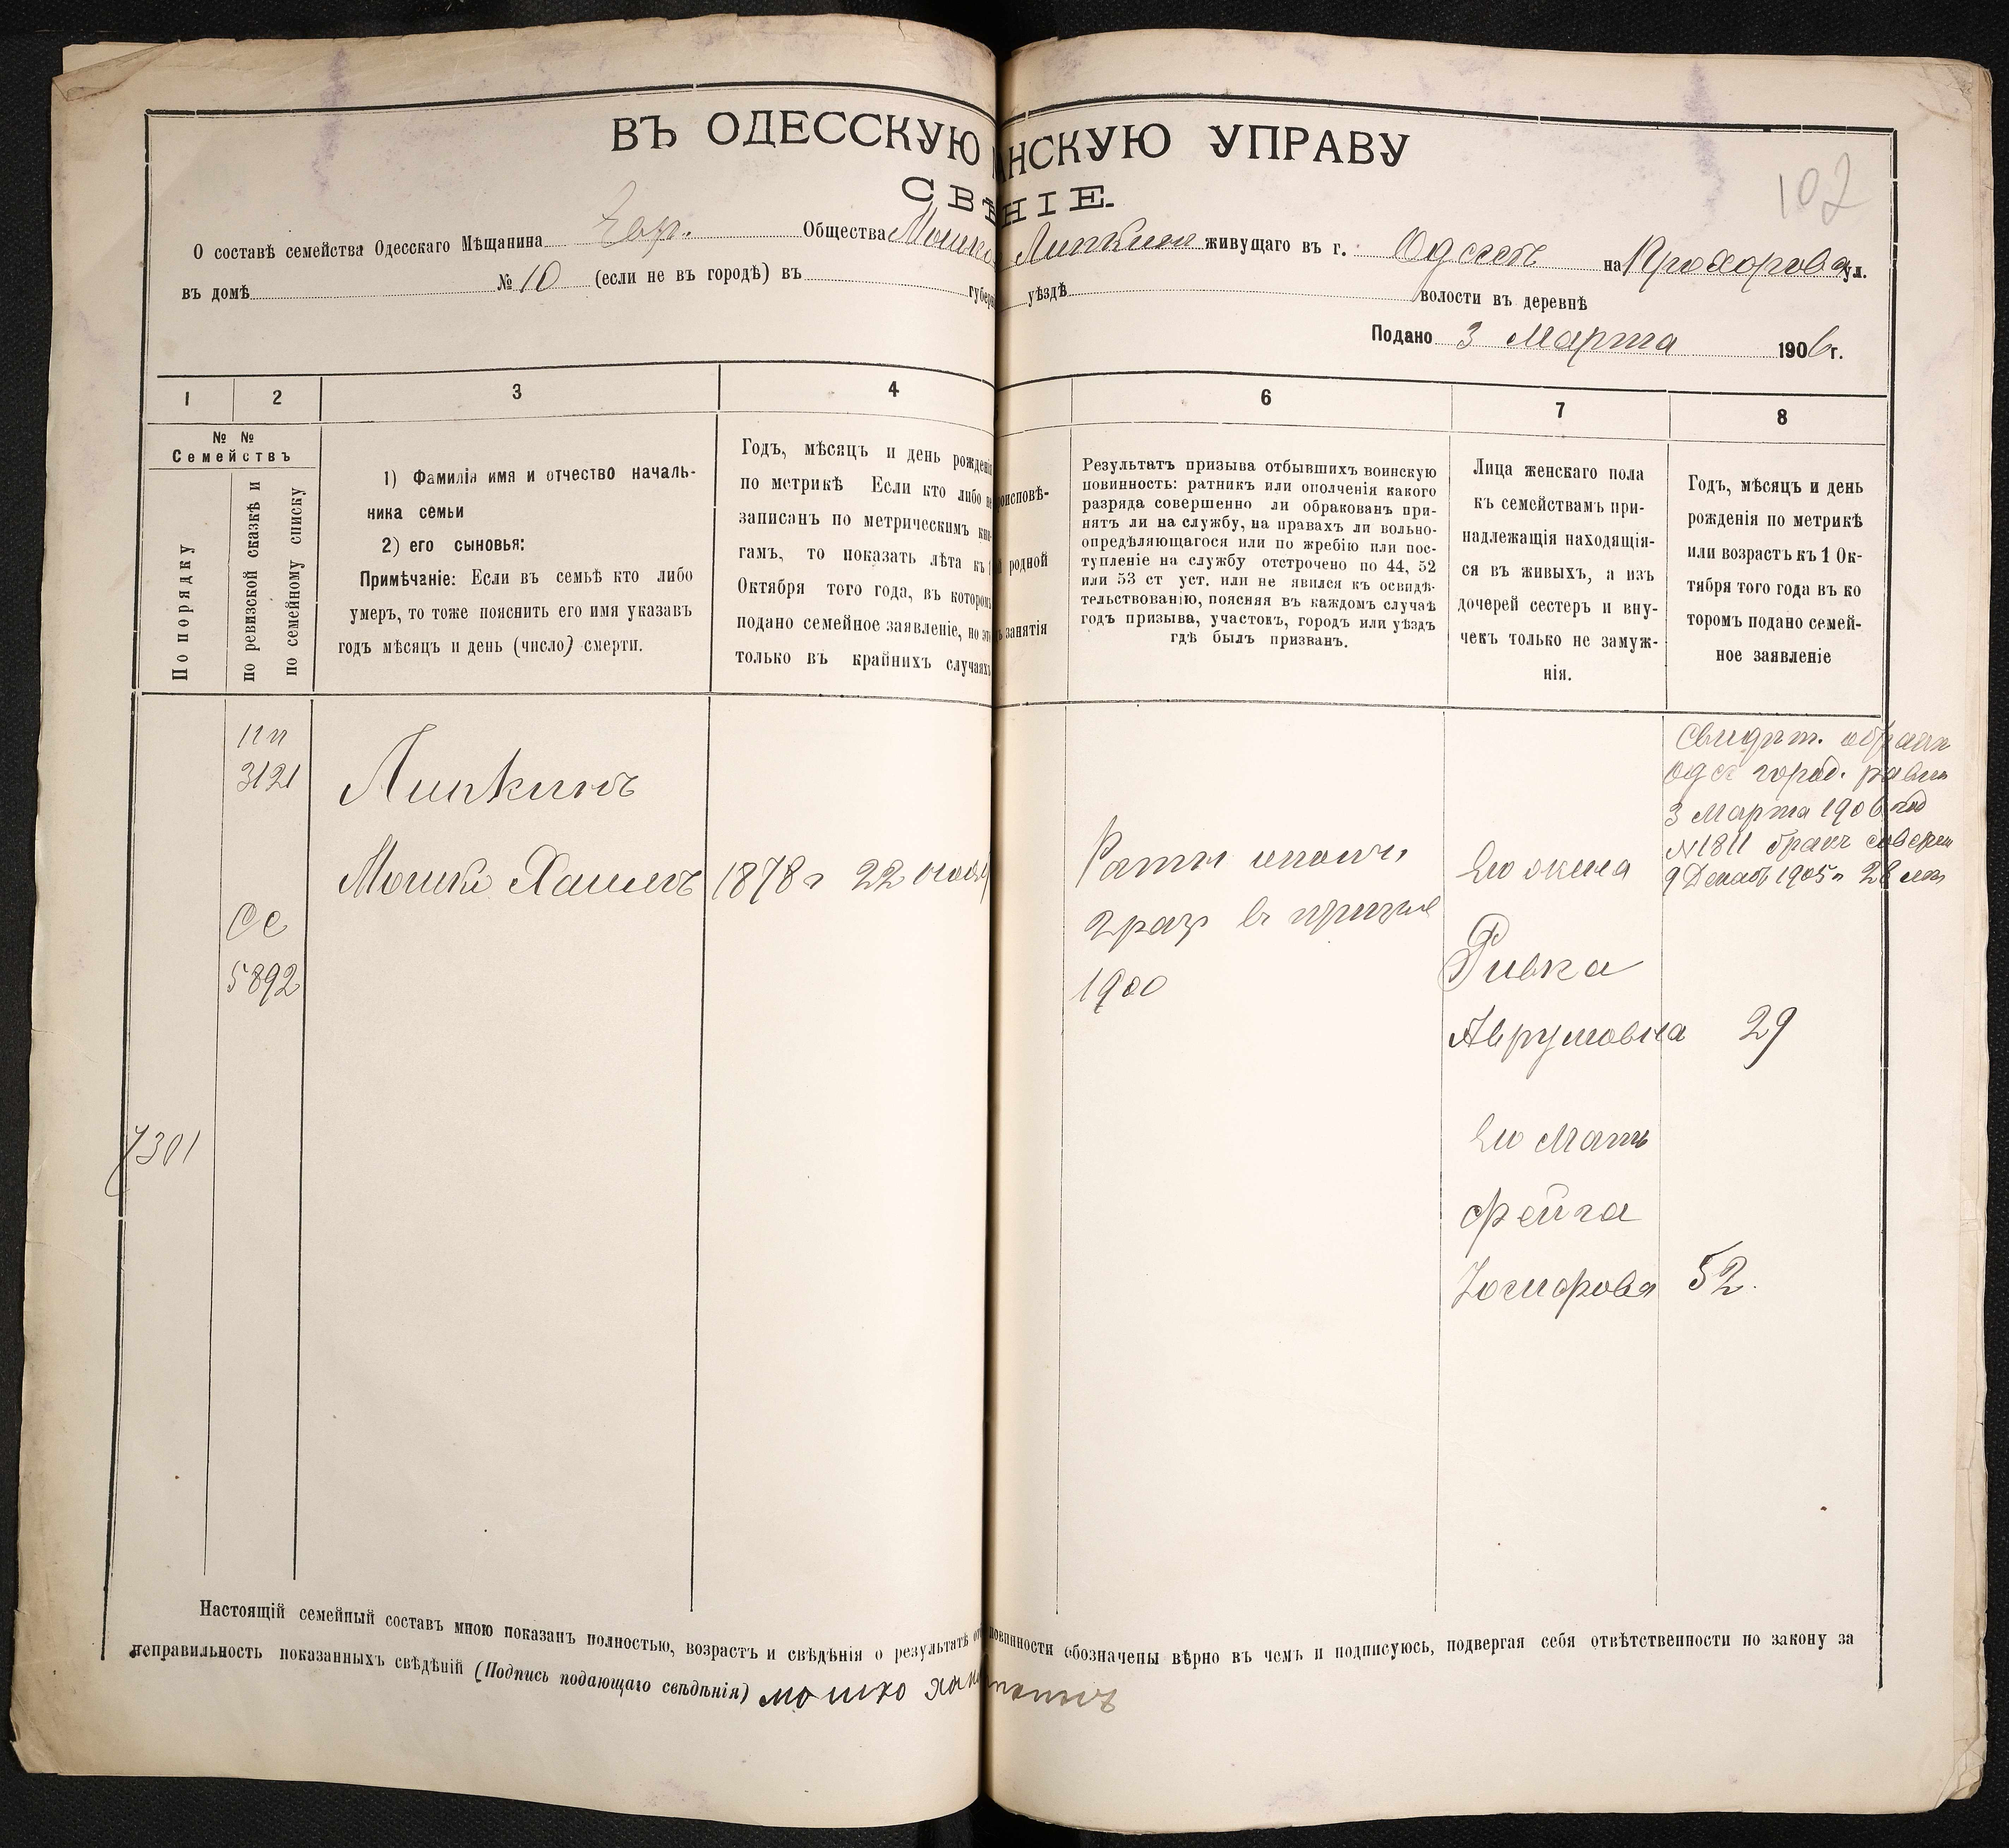 ВЪ ОДЕССКУЮ НСКУЮ УПРАВУ
СВѢ НІЕ.
102
О составѣ семейства Одесскаго Мѣщанина Евр. Общества Мошко Липкина живущаго въ г. Одессѣ на Прохоровс ул.
въ домѣ № 10 (если не въ городѣ) въ губерн уѣздѣ волости въ деревнѣ
Подано 3 Марта 1906 г.
1 2 3 4 6 7 8
№ № Семействъ
По порядку
по ревизской сказкѣ и
по семейному списку
1) Фамилія имя и отчество началь-
ника семьи
2) его сыновья:
Примѣчаніе: Если въ семьѣ кто либо
умеръ, то тоже пояснить его имя указавъ
годъ мѣсяцъ и день (число) смерти.
Годъ, мѣсяцъ и день рожденія
по метрикѣ Если кто либо не
записанъ по метрическимъ кни-
гамъ, то показать лѣта къ 1
Октября того года, въ котором
подано семейное заявленіе, но это
только въ крайнихъ случаяхъ
роисповѣ-
родной
занятія
Результатъ призыва отбывшихъ воинскую
повинность: ратникъ или ополченія какого
разряда совершенно ли обракованъ при-
нятъ ли на службу, на правахъ ли вольно-
опредѣляющагося или по жребію или пос-
тупленіе на службу отсрочено по 44, 52
или 53 ст уст. или не явился къ освидѣ-
тельствованію, поясняя въ каждомъ случаѣ
годъ призыва, участокъ, городъ или уѣздъ
гдѣ былъ призванъ.
Лица женскаго пола
къ семействамъ при-
надлежащія находящія-
ся въ живыхъ, а изъ
дочерей сестеръ и вну-
чекъ только не замуж-
нія.
Годъ, мѣсяцъ и день
рожденія по метрикѣ
или возрастъ къ 1 Ок-
тября того года въ ко
торомъ подано семей-
ное заявленіе
3121
Липкинъ
Мошко 1878 г 22
Се
5892
7301
Ратн ополч
2 раз в призыв
1900
Его жена
Ривка
Аврумовна 29
Его мать
Фейга
Іосифова 52.
Свидѣт. о брак
Одес город. равин
3 Марта 1906 под
№ 1811 брак соверш
9 Декаб 1905 г 28 лет
Настоящій семейный составъ мною показанъ полностью, возрастъ и свѣдѣнія о результатѣ от повинности обозначены вѣрно въ чемъ и подписуюсь, подвергая себя отвѣтственности по закону за
неправильность показанныхъ свѣдѣній (Подпись подающаго свѣдѣнія) мошко